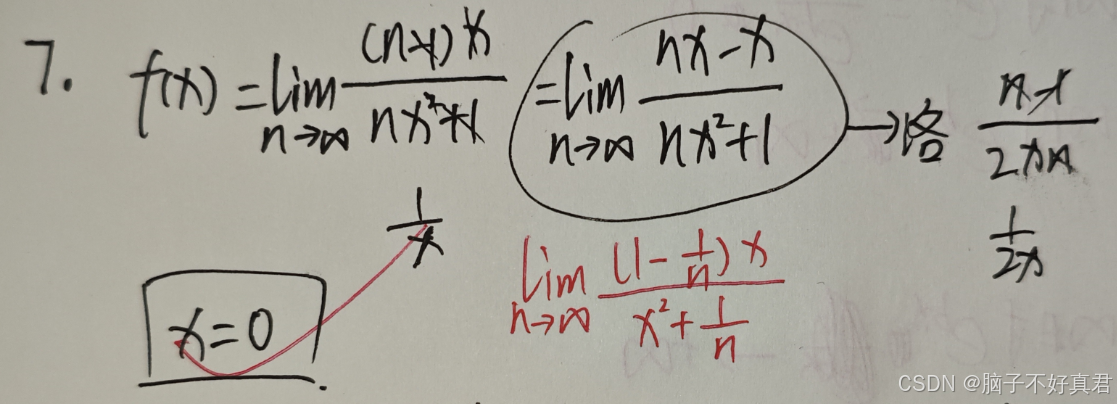 7. f(x) = lim n→∞ (n-1)x / nx²+1 = lim n→∞ nx-x / nx²+1 → 洛 n-1 / 2xn
1/x
1/2x
lim n→∞ (1-1/n)x / x²+1/n
x=0
CSDN @脑子不好真君